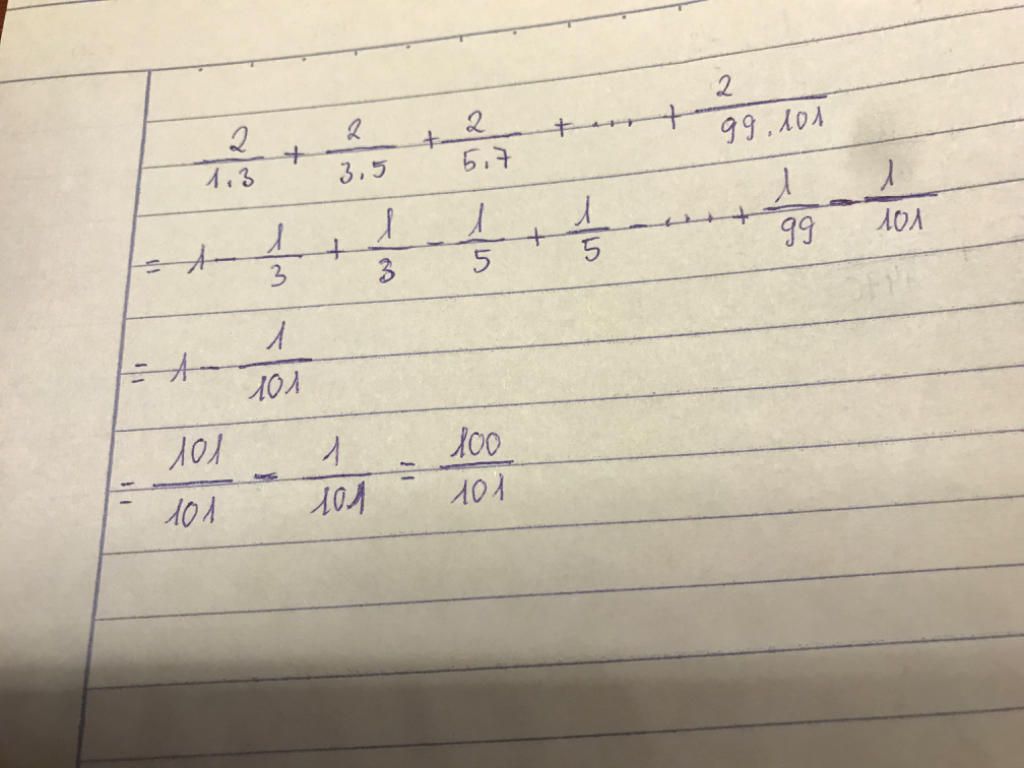 2/1.3 + 2/3.5 + 2/5.7 + .... + 2/99.101
= 1 - 1/3 + 1/3 - 1/5 + 1/5 - .... + 1/99 - 1/101
= 1 - 1/101
= 101/101 - 1/101 = 100/101